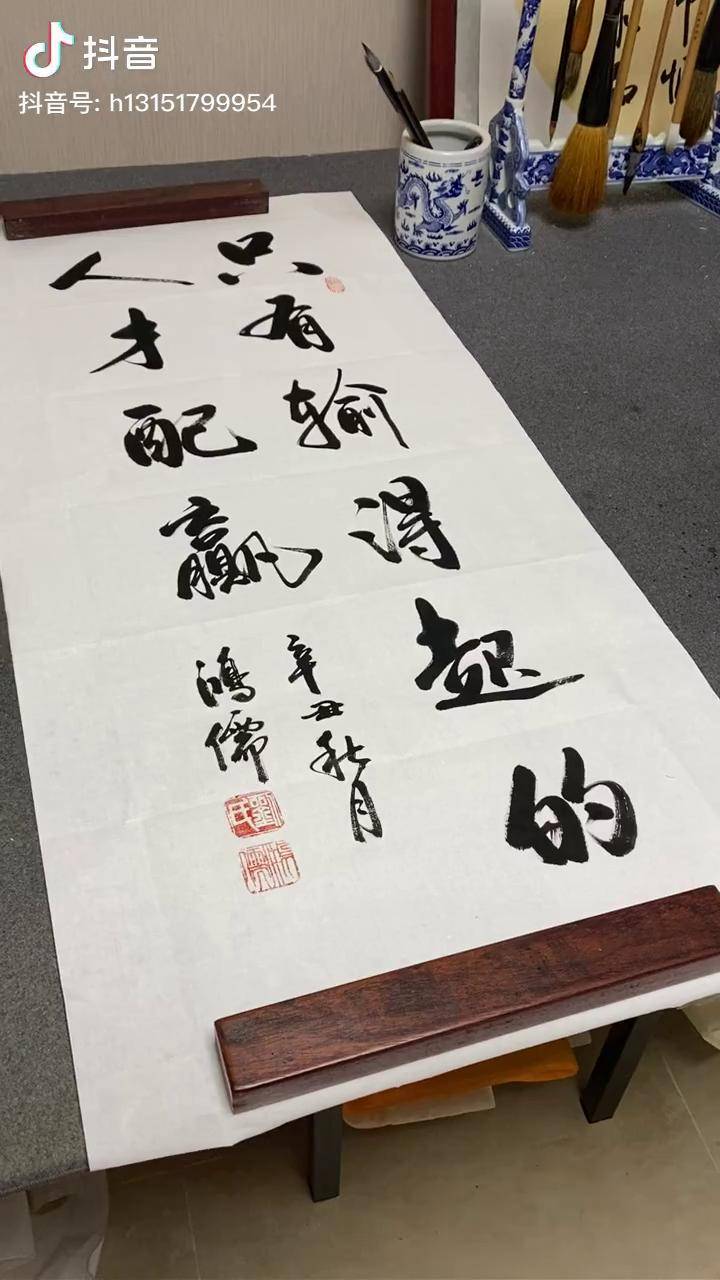 抖音
抖音号: h13151799954
只有输得起的
人才配赢
辛丑秋月
鸿儒